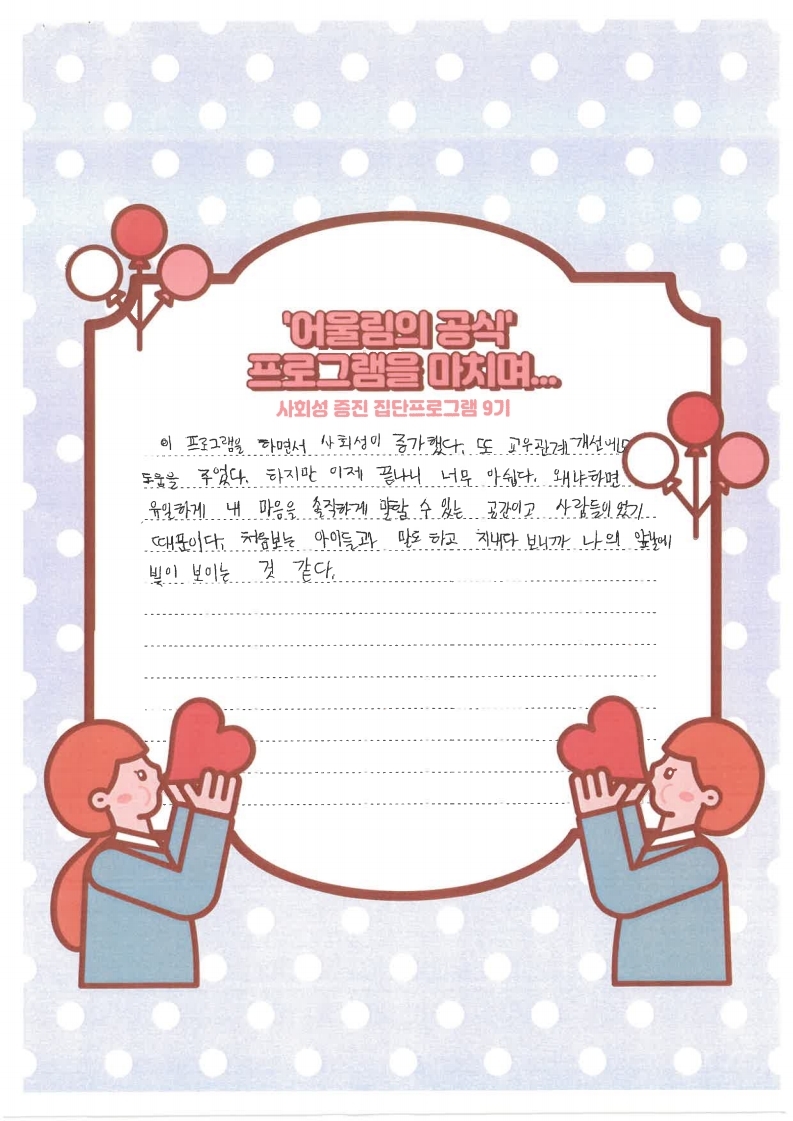 '어울림의 공식'
프로그램을 마치며...
사회성 증진 집단프로그램 9기
이 프로그램을 하면서 사회성이 증가했다. 또 교우관계 개선에도
도움을 주었다. 하지만 이제 끝나니 너무 아쉽다. 왜냐하면
유일하게 내 마음을 솔직하게 말할 수 있는 공간이고 사람들이었기
때문이다. 처음보는 아이들과 말도 하고 지내다 보니까 나의 앞날에
빛이 보이는 것 같다.